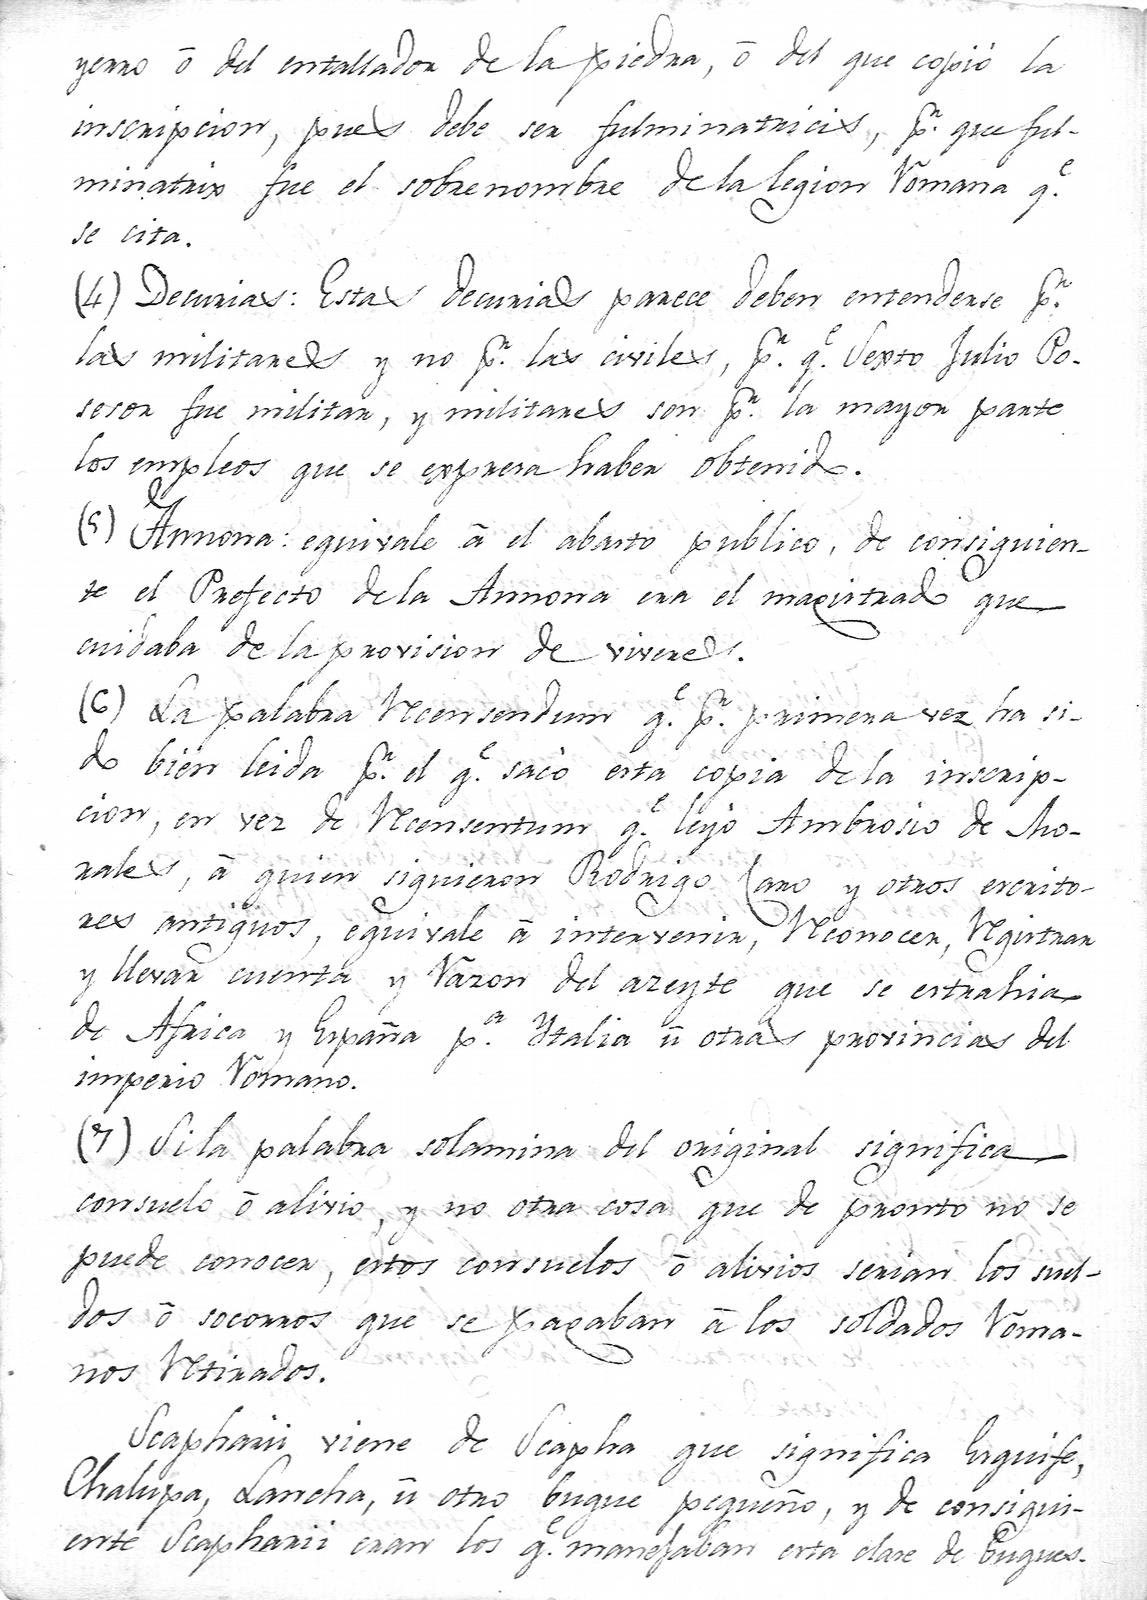 yerro ō del entallador de la piedra, ō del que copió la
inscripcion, pues debe ser fulminatricis, p.r que ful-
minatrix fue el sobrenombre de la legion Romana q.e
se cita.
(4) Decurias: Estas decurias parece deben entenderse p.r
las militares y no p.r las civiles, p.r q.e Sexto Julio Po-
sesor fue militar, y militares son p.r la mayor parte
los empleos que se expresa haber obtenido.
(5) Annona: equivale ā el abasto publico, de consiguien-
te el Prefecto de la Annona era el magistrado que
cuidaba de la provision de viveres.
(6) La palabra Recensendum q.e p.r primera vez ha si-
do bien leida p.r el q.e sacò esta copia de la inscrip-
cion, en vez de Recensentum q.e leyò Ambrosio de Mo-
rales, ā quien siguieron Rodrigo Caro y otros escrito-
res antiguos, equivale ā intervenir, Reconocer, Registrar
y llevar cuenta y Razon del azeyte que se estrahia
de Africa y España p.a Ytalia ū otras provincias del
imperio Romano.
(7) Si la palabra solamina del original significa
consuelo ō alivio, y no otra cosa que de pronto no se
puede conocer, estos consuelos ō alivios serian los suel-
dos ō socorros que se pagaban ā los soldados Roma-
nos Retirados.
Scapharii viene de Scapha que significa Esquife,
Chalupa, Lancha, ū otro buque pequeño, y de consigui-
ente Scapharii eran los q.e manejaban esta clase de Buques.